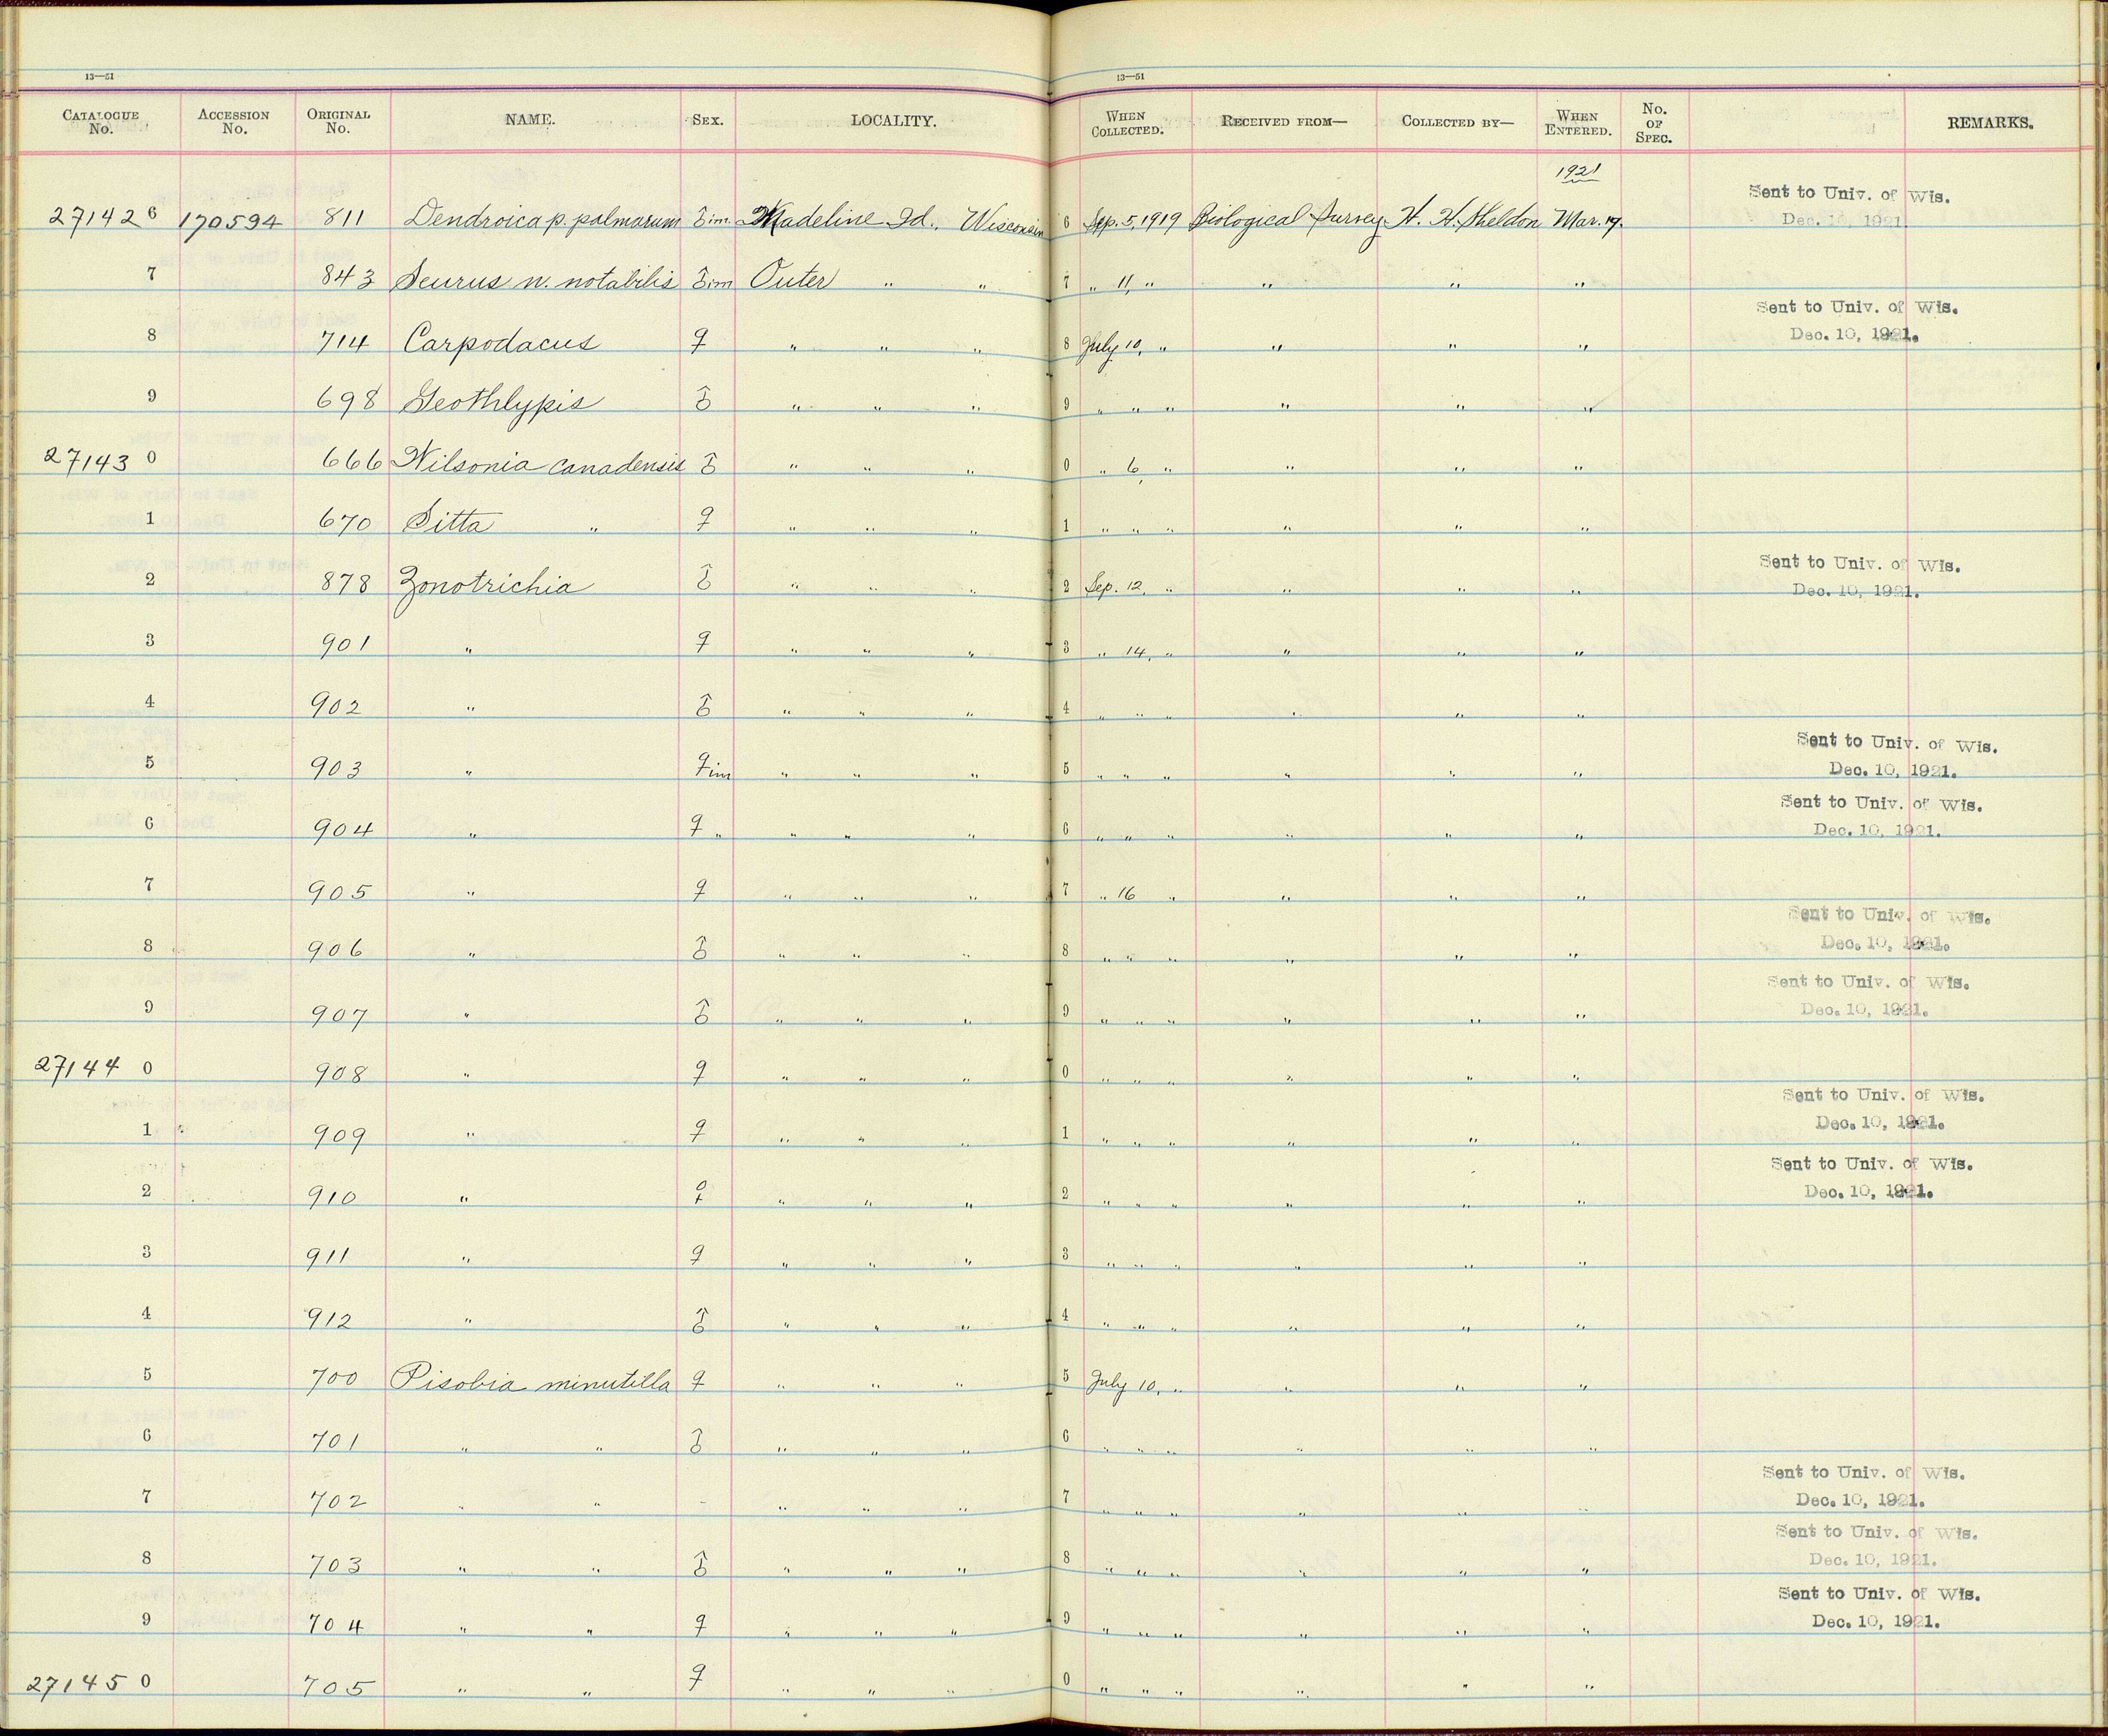 13—51 13—51
CATALOGUE No. ACCESSION No. ORIGINAL No. NAME. SEX. LOCALITY. WHEN COLLECTED. RECEIVED FROM— COLLECTED BY— WHEN ENTERED. No. OF SPEC. REMARKS.
1921
27142 6 170594 811 Dendroica p. palmarum ♂ im. Madeline Id., Wisconsin 6 Sep. 5, 1919 Biological Survey H. H. Sheldon Mar. 17. Sent to Univ. of Wis. Dec. 10, 1921.
7 843 Seiurus n. notabilis ♂ im Outer " " 7 " 11, " " " "
8 714 Carpodacus ♀ " " " 8 July 10, " " " " Sent to Univ. of Wis. Dec. 10, 1921.
9 698 Geothlypis ♂ " " " 9 " " " " " "
27143 0 666 Wilsonia canadensis ♂ " " " 0 " 6, " " " "
1 670 Sitta " ♀ " " " 1 " " " " " "
2 878 Zonotrichia ♂ " " " 2 Sep. 12, " " " " Sent to Univ. of Wis. Dec. 10, 1921.
3 901 " ♀ " " " 3 " 14, " " " "
4 902 " ♂ " " " 4 " " " " " "
5 903 " ♀ im " " " 5 " " " " " " Sent to Univ. of Wis. Dec. 10, 1921.
6 904 " ♀ " " " " 6 " " " " " " Sent to Univ. of Wis. Dec. 10, 1921.
7 905 " ♀ " " " 7 " 16 " " " "
8 906 " ♂ " " " 8 " " " " " " Sent to Univ. of Wis. Dec. 10, 1921.
9 907 " ♂ " " " 9 " " " " " " Sent to Univ. of Wis. Dec. 10, 1921.
27144 0 908 " ♀ " " " 0 " " " " " "
1 909 " ♀ " " " 1 " " " " " " Sent to Univ. of Wis. Dec. 10, 1921.
2 910 " ♀ " " " 2 " " " " " " Sent to Univ. of Wis. Dec. 10, 1921.
3 911 " ♀ " " " 3 " " " " " "
4 912 " ♂ " " " 4 " " " " " "
5 700 Pisobia minutilla ♀ " " " 5 July 10, " " " "
6 701 " " ♂ " " " 6 " " " " " "
7 702 " " - " " " 7 " " " " " " Sent to Univ. of Wis. Dec. 10, 1921.
8 703 " " ♂ " " " 8 " " " " " " Sent to Univ. of Wis. Dec. 10, 1921.
9 704 " " ♀ " " " 9 " " " " " " Sent to Univ. of Wis. Dec. 10, 1921.
27145 0 705 " " ♀ " " " 0 " " " " " "